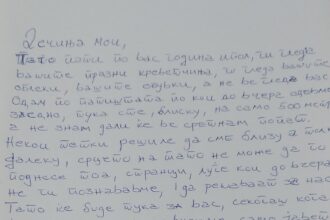 Дечиња мои,
Тато пати по вас година ипол, ги гледа
вашите празни креветчиња, ги гледа вашите
алешки, вашите слики, а не ве гледа вас
Одам по патиштата по кои до вчера одевме
заедно, тука сте, блиску, на само 500 метри
а не знам дали ќе ве сретнам попат.
Некои тетки решиле да сте близу а толку
далеку, срцето на тато не може да го
поднесе тоа, странци, луѓе кои до вчера
не ги познававме, да решаваат за нас
Тато ќе биде тука за вас, секогаш кога